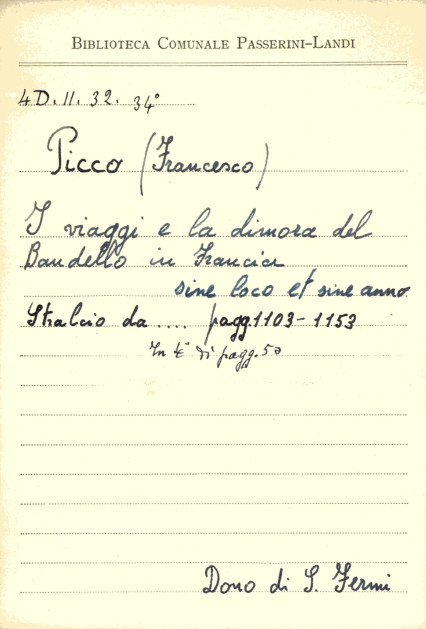 BIBLIOTECA COMUNALE PASSERINI-LANDI
4D.II.32. 34°
Picco (Francesco)
I viaggi e la dimora del
Bandello in Francia
sine loco et sine anno
Stralcio da .... pagg. 1103-1153
In 4° di pagg. 50
Dono di S. Fermi